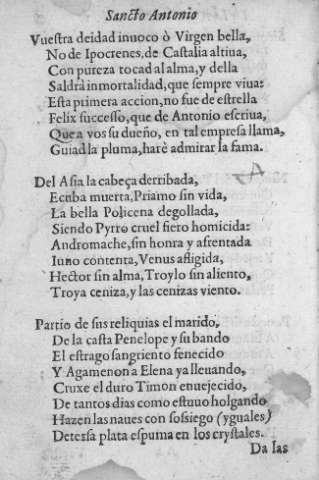 Sancto Antonio
Vuestra deidad inuoco ò Virgen bella,
No de Ipocrenes, de Castalia altiua,
Con pureza tocad al alma, y della
Saldrà inmortalidad, que sempre viua:
Esta primera accion, no fue de estrella
Felix sucesso, que de Antonio escriua,
Que a vos su dueño, en tal empresa llama,
Guiad la pluma, harè admirar la fama.
Del Asia la cabeça derribada,
Ecuba muerta, Priamo sin vida,
La bella Policena degollada,
Siendo Pyrro cruel fiero homicida:
Andromache, sin honra y afrentada
Iuno contenta, Venus afligida,
Hector sin alma, Troylo sin aliento,
Troya ceniza, y las cenizas viento.
Partio de sus reliquias el marido,
De la casta Penelope y su bando
El estrago sangriento fenecido
Y Agamenon a Elena ya lleuando,
Cruxe el duro Timon enuejecido,
De tantos dias como estuuo holgando
Hazen las naues con sossiego (yguales)
Detersa plata espuma en los crystales.
Da las